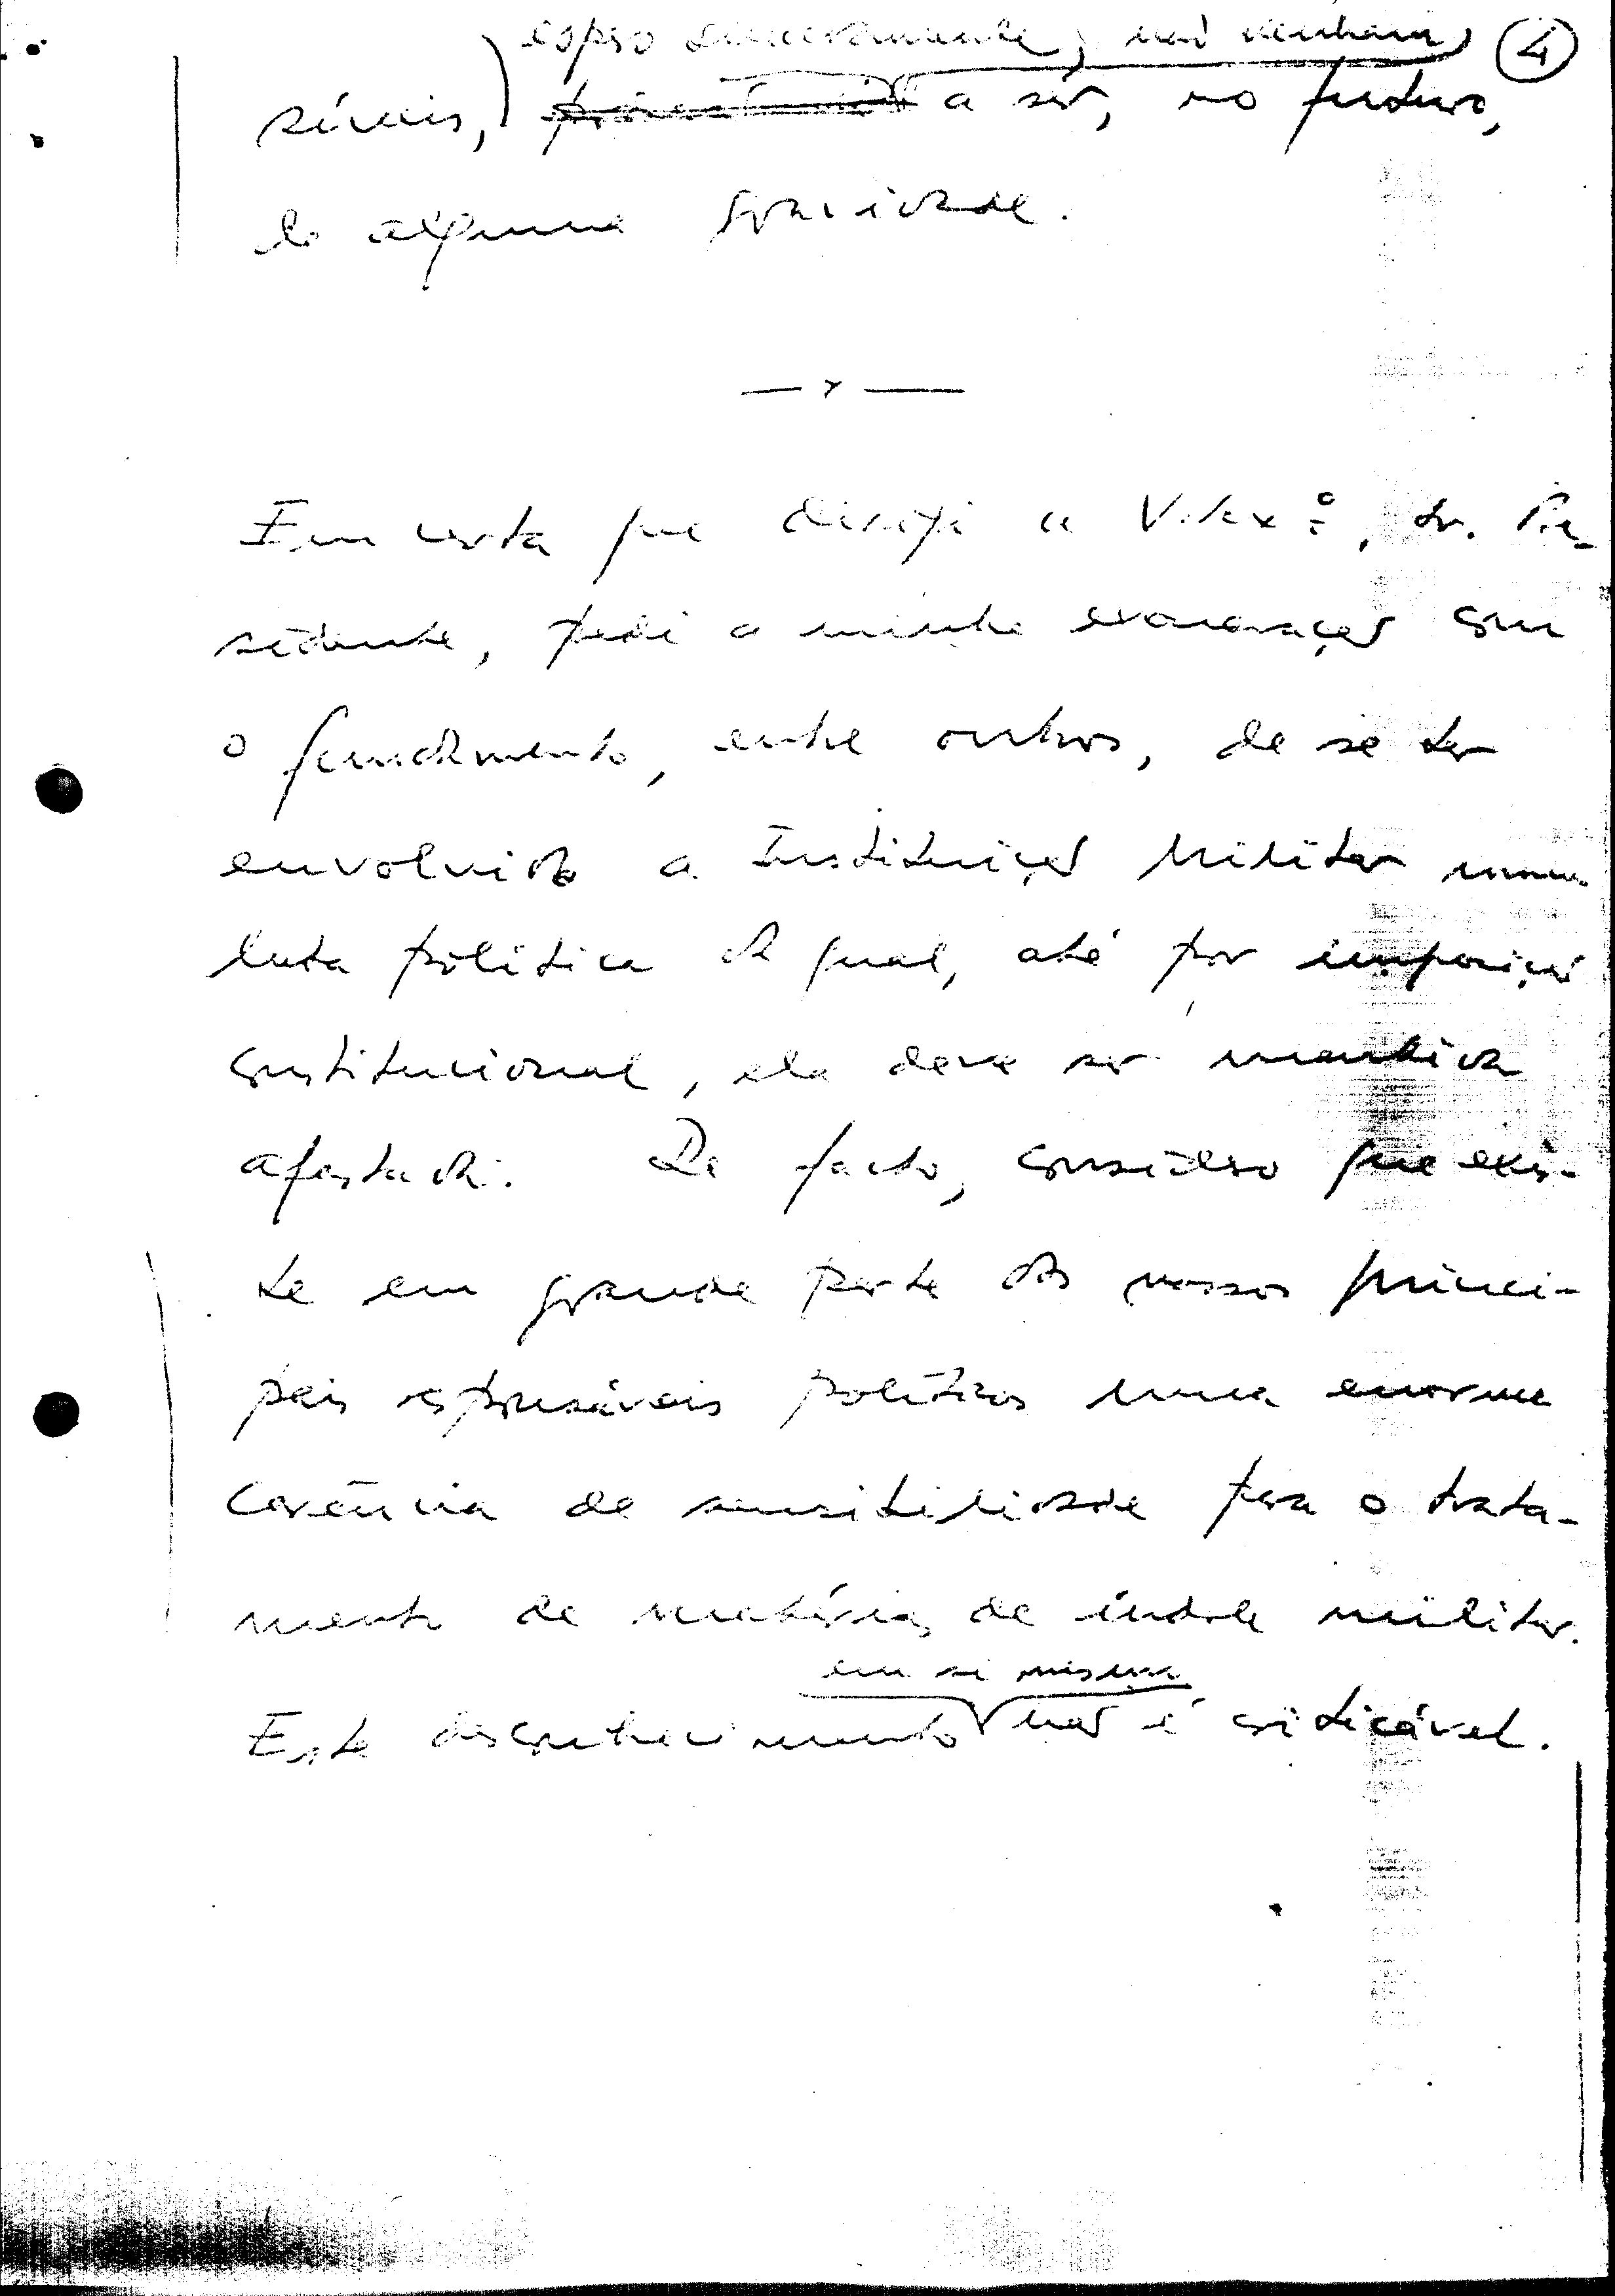 espero sinceramente, não venham ④
síveis, a ser, no futuro,
de alguma gravidade.
— x —
Em carta que dirigi a V. Ex.ª, Sr. Pre-
sidente, pedi a minha exoneração com
o fundamento, entre outros, de se ter
envolvido a Instituição Militar numa
luta política da qual, até por imposição
constitucional, ela deve ser mantida
afastada. De facto, considero que exis-
te em grande parte dos nossos princi-
pais responsáveis políticos uma enorme
carência de sensibilidade para o trata-
mento de matérias de índole militar.
em si mesmo
Este desconhecimento não é criticável.